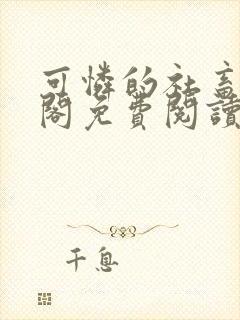 可憐的社畜
閣免費閱讀
千息